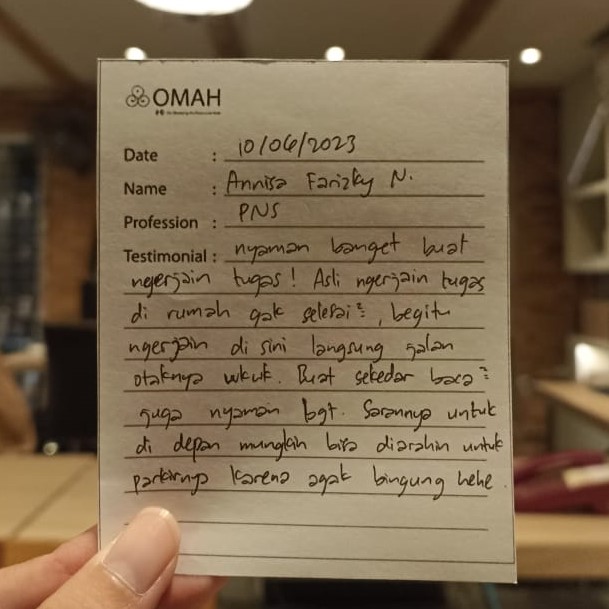 OMAH
Date : 10/06/2023
Name : Annisa Farizky N.
Profession : PNS
Testimonial : nyaman banget buat
ngerjain tugas! Asli ngerjain tugas
di rumah gak selesai², begitu
ngerjain di sini langsung jalan
otaknya wkwk. Buat sekedar baca²
juga nyaman bgt. Sarannya untuk
di depan mungkin bisa diarahin untuk
parkirnya karena agak bingung hehe.